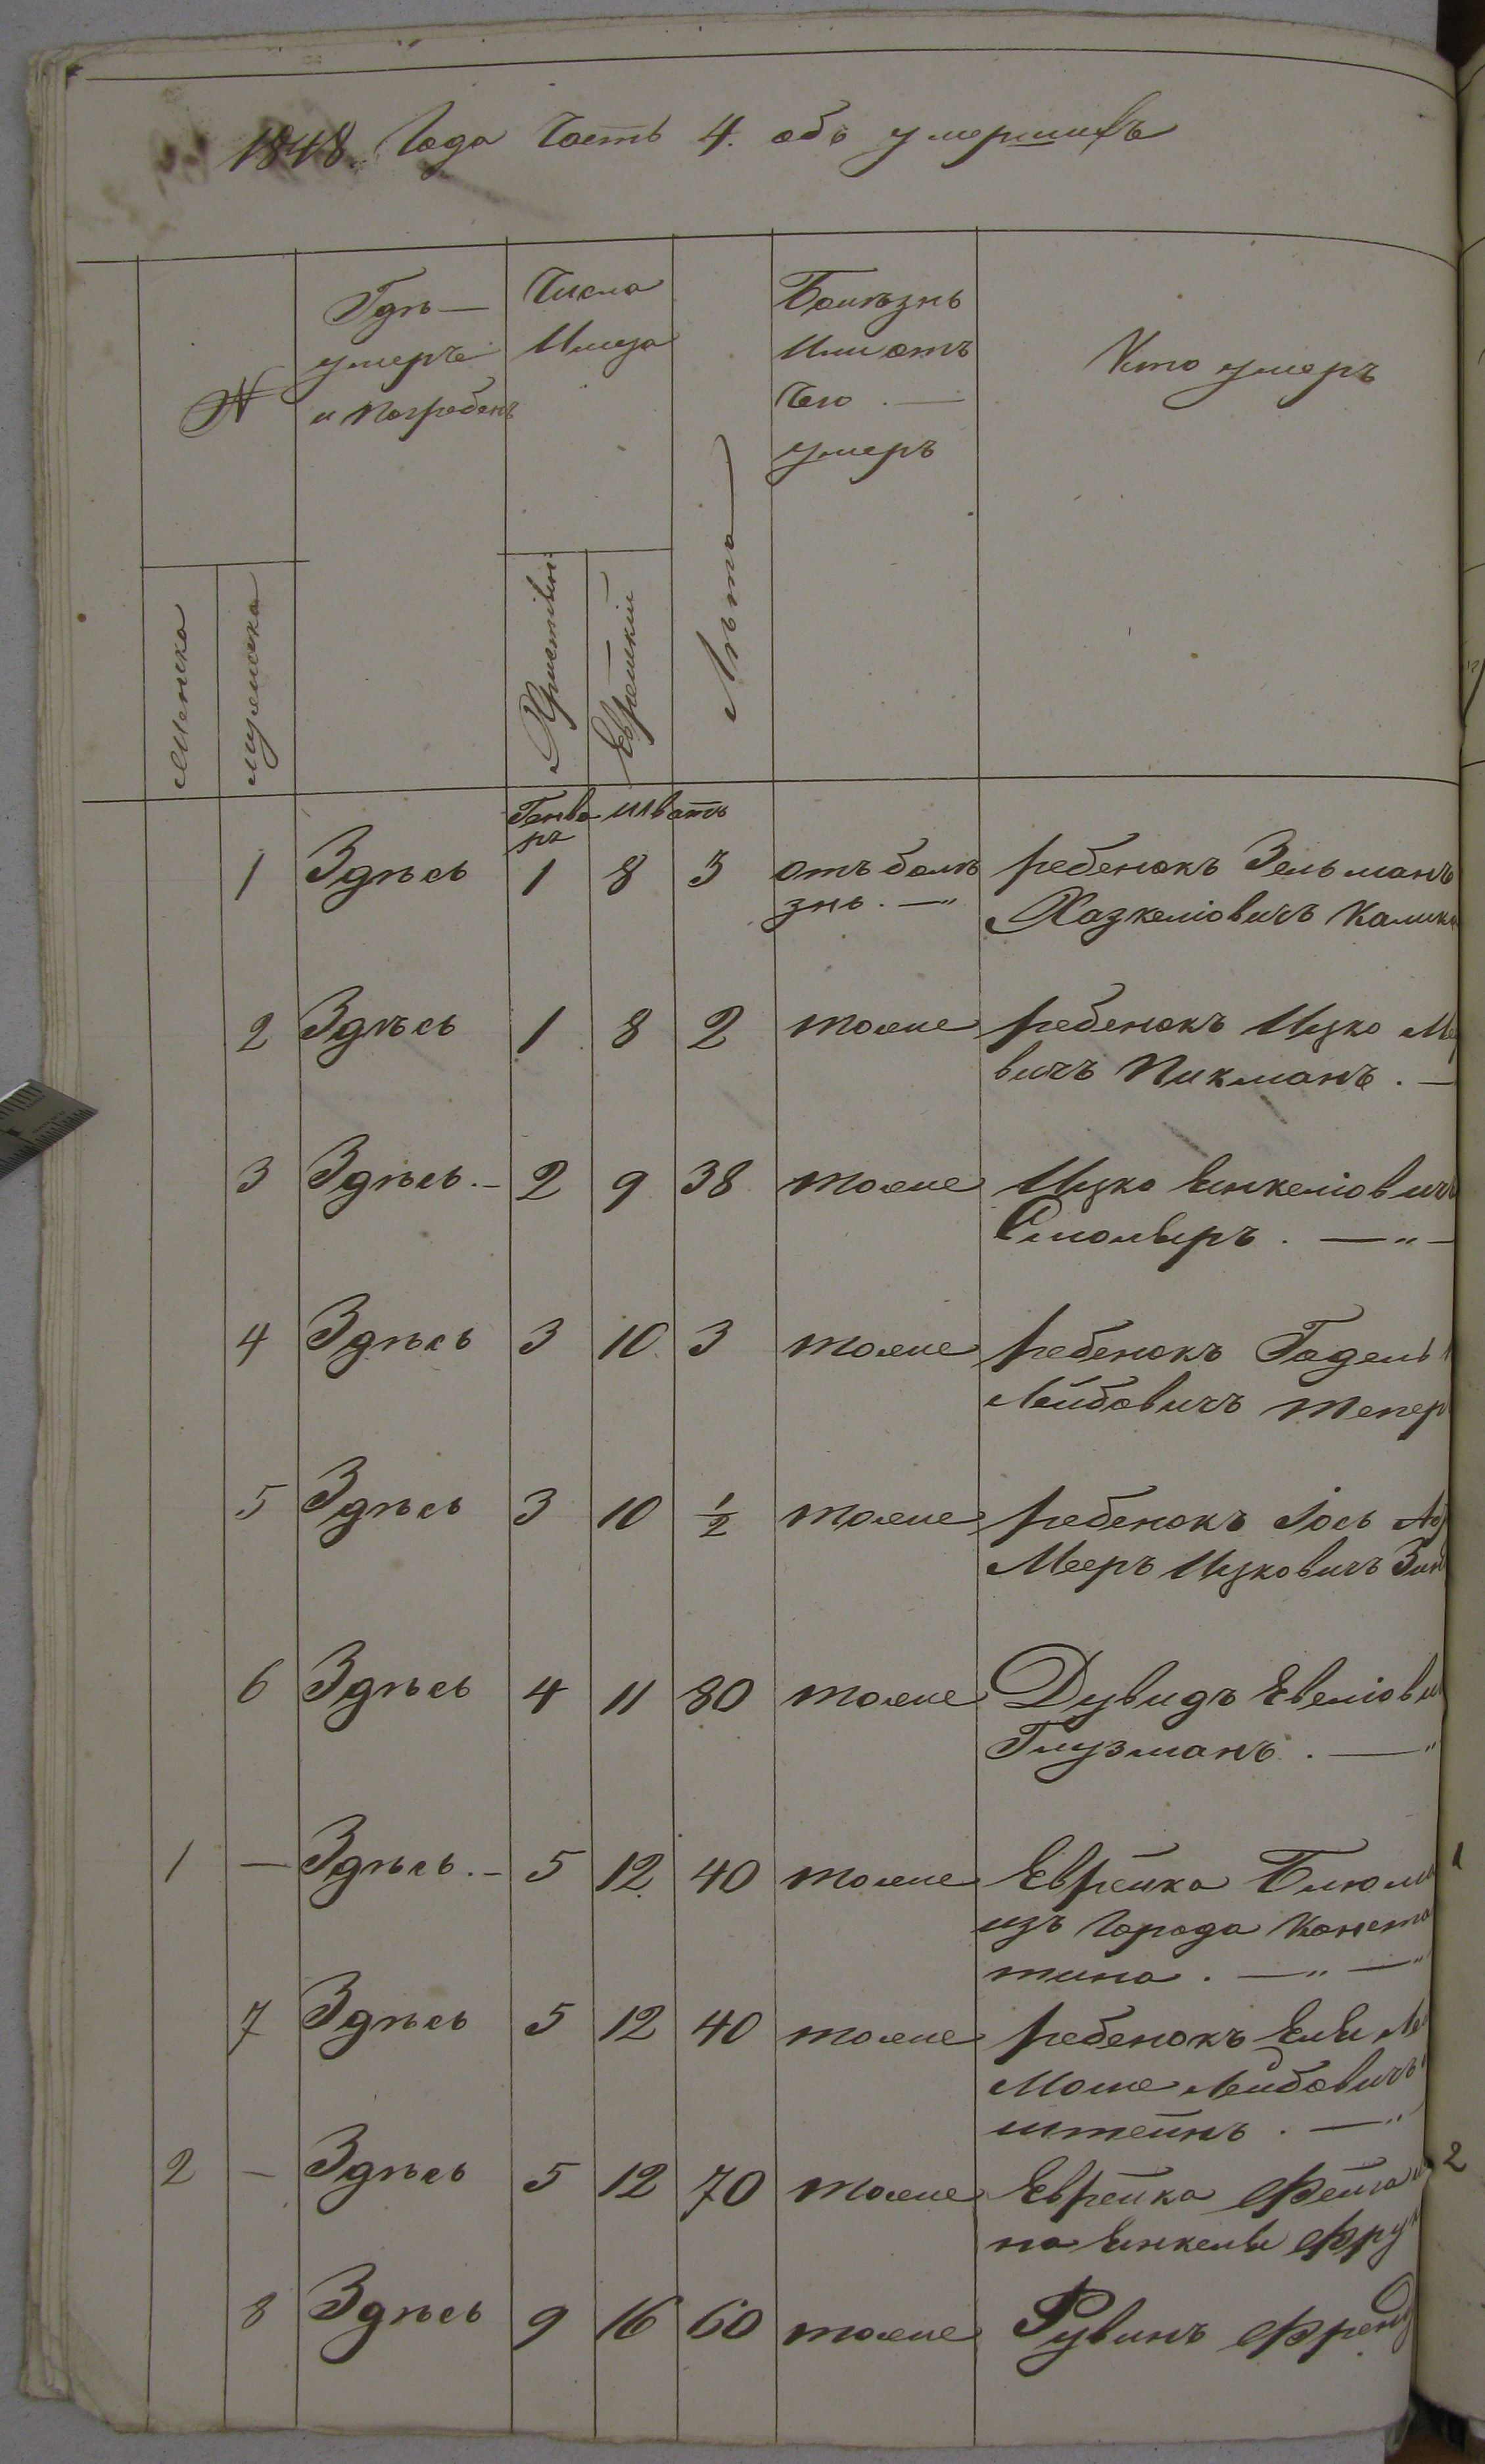 1848. Года Часть 4. объ умершихъ
№
Женска
мужеска
Гдѣ —
умерче
и погребенъ
Числа
Мица
Християн
Еврейскiй
Лѣта
Болѣзнь
Или отъ
Чего . —
умеръ
Кто умеръ
Генва Шватъ
рь
1 Здѣсь 1 8 3 отъ болѣ ребенокъ Зельманъ
знь . — " Хазкелiовичъ
2 Здѣсь 1 8 2 тоже ребенокъ Ицко
вичъ Пикманъ . —
3 Здѣсь . — 2 9 38 тоже Ицко Енкелiовичъ
Смоляръ . — " —
4 Здѣсь 3 10 3 тоже ребенокъ Годель
Лейбовичъ тепер
5 Здѣсь 3 10 1/2 тоже ребенокъ Iось
Мееръ Ицковичъ
6 Здѣсь 4 11 80 тоже Дувидъ Евелiови
Глузманъ . — "
1 — Здѣсь . — 5 12 40 тоже Еврейка Блюма 1
изъ города Конста
тина . — " — "
7 Здѣсь 5 12 40 тоже ребенокъ
Моше Лейбовичъ
штейнъ . — "
2 — Здѣсь 5 12 70 тоже Еврейка Фейга 2
на Енкелы Фру
8 Здѣсь 9 16 60 тоже Рувинъ Френд